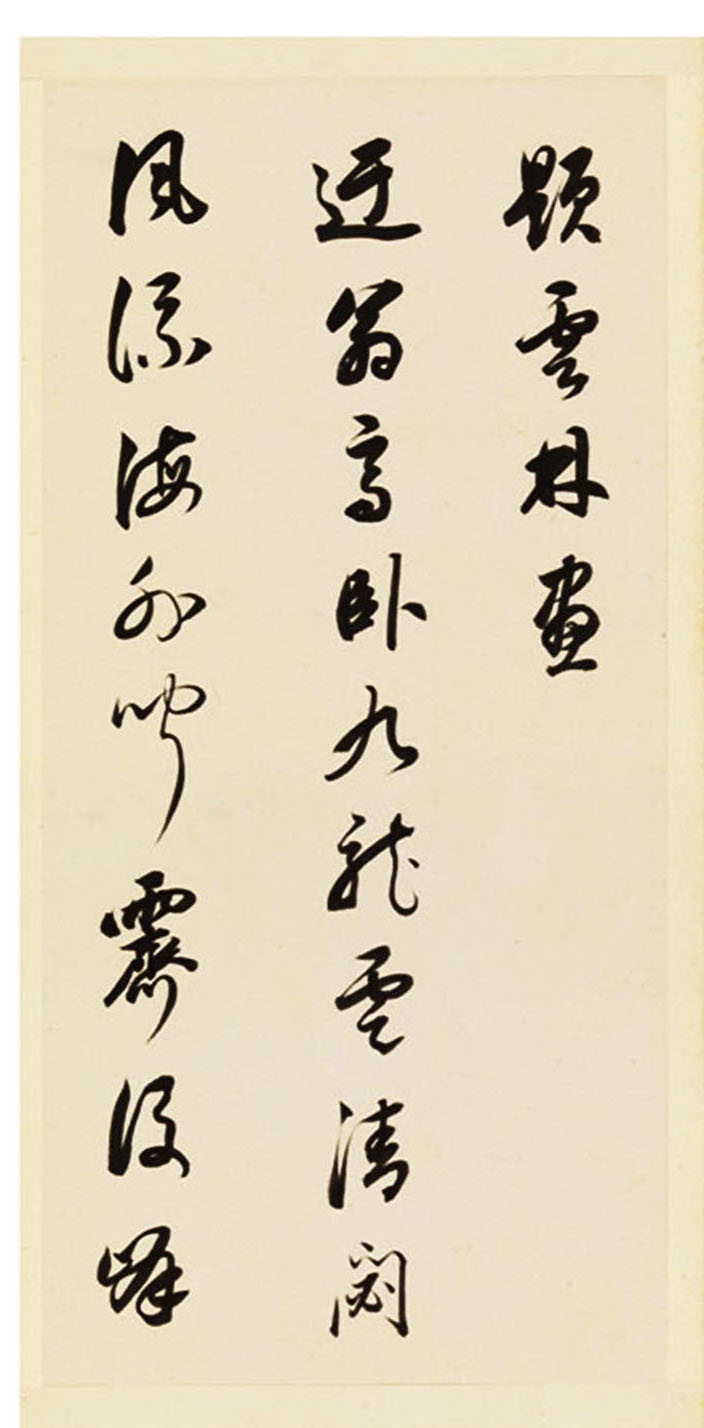 題雲林畫
迂翁高臥九龍雲清閟
風流海外聞霽後峰